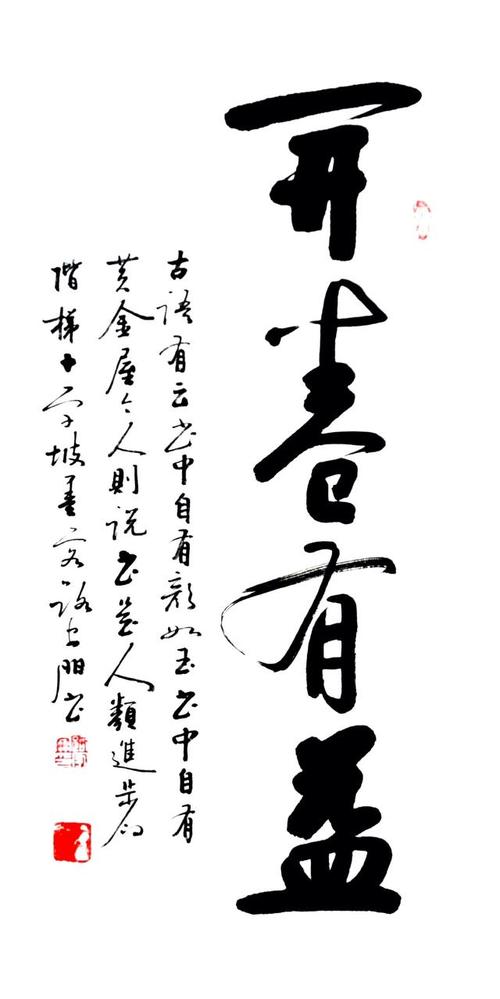 开卷有益
古语有云书中自有颜如玉书中自有
黄金屋今人则说书是人類進步的
階梯十字坡墨客路士陽书